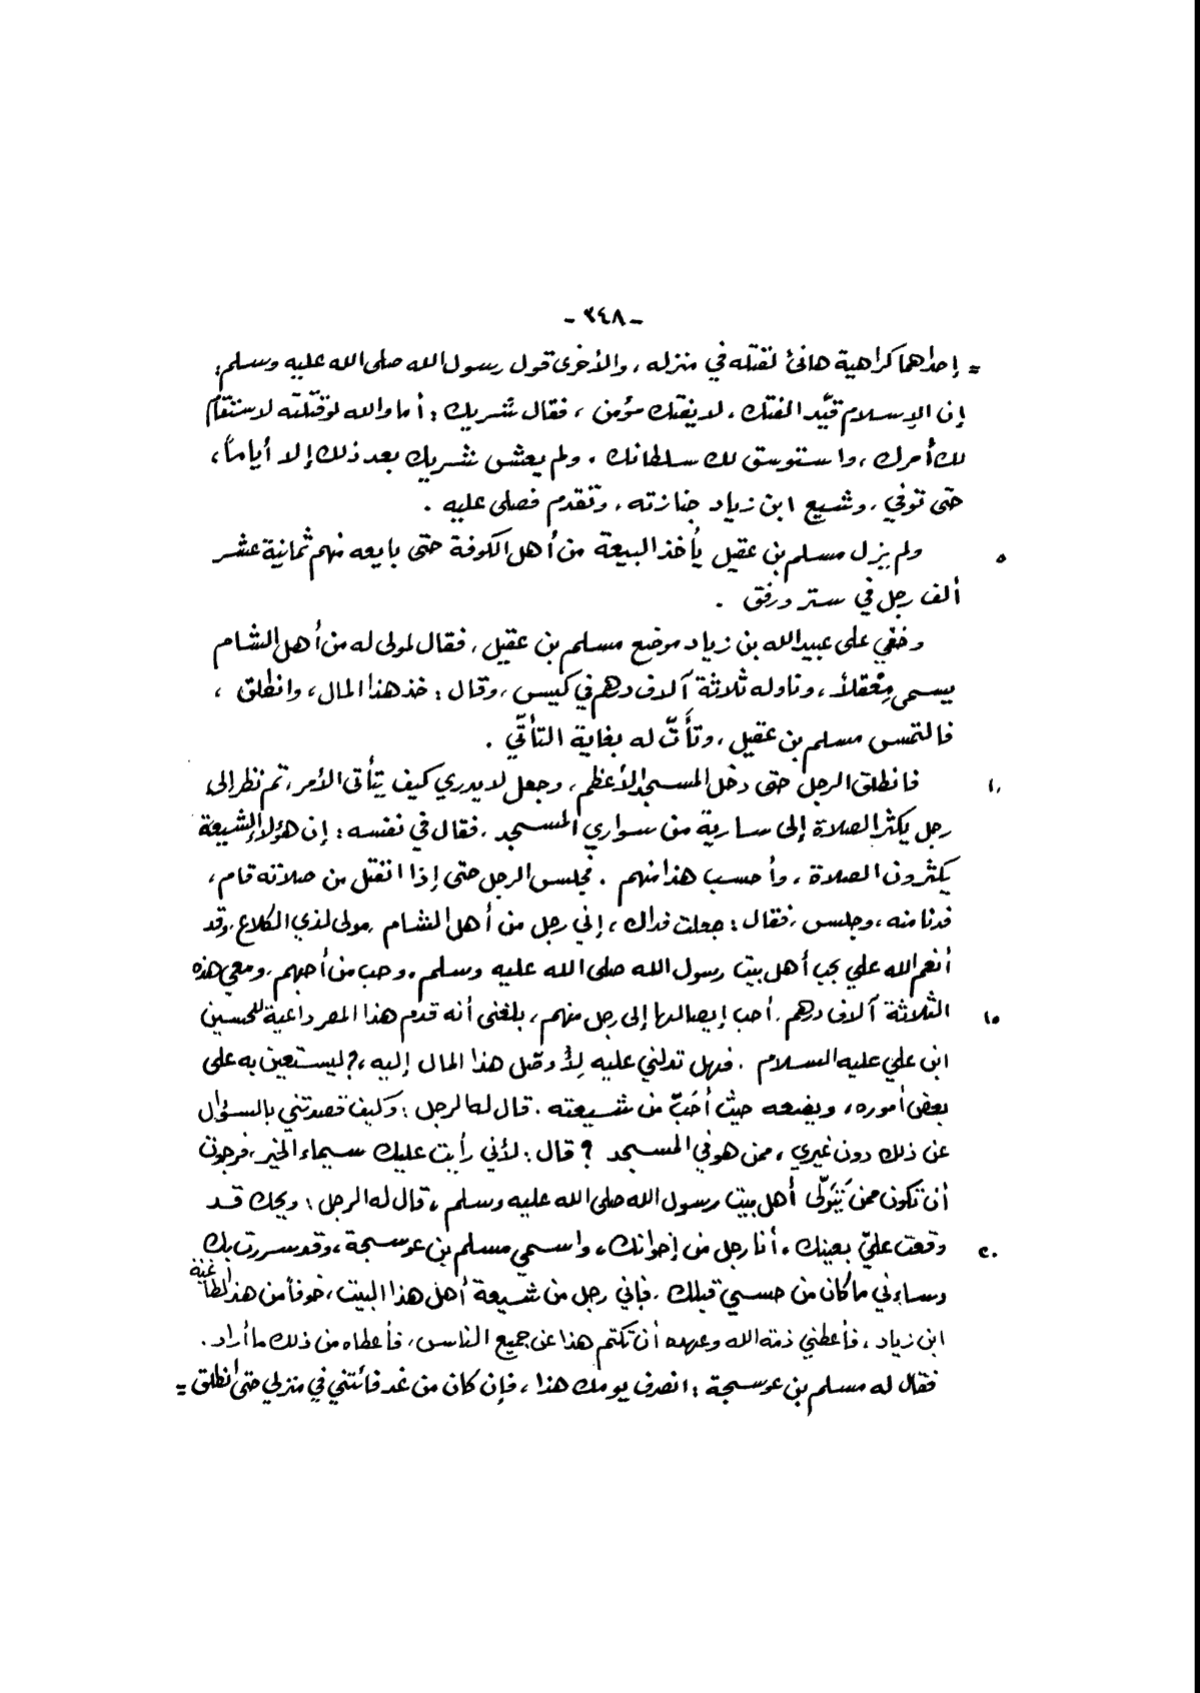 - ٣٤٨ -
= إحداهما كراهية هانئ لقتله في منزله ، والأخرى قول رسول الله صلى الله عليه وسلم :
إن الإسلام قيّد الفتك ، لا يفتك مؤمن ، فقال شريك : أما والله لو قتلته لاستقام
لك أمرك ، واستوسق لك سلطانك . ولم يعش شريك بعد ذلك إلا أياماً ،
حتى توفي ، وشيع ابن زياد جنازته ، وتقدم فصلى عليه .
٥ ولم يزل مسلم بن عقيل يأخذ البيعة من أهل الكوفة حتى بايعه منهم ثمانية عشر
ألف رجل في ستر ورفق .
وخفي على عبيد الله بن زياد موضع مسلم بن عقيل ، فقال لمولى له من أهل الشام
يسمى مِعْقلاً ، وناوله ثلاثة آلاف درهم في كيس ، وقال : خذ هذا المال ، وانطلق ،
فالتمس مسلم بن عقيل ، وتأَتّ له بغاية التأتّي .
١٠ فانطلق الرجل حتى دخل المسجد الأعظم ، وجعل لا يدري كيف يتأتى الأمر ، ثم نظر إلى
رجل يكثر الصلاة إلى سارية من سواري المسجد ، فقال في نفسه : إن هؤلاء الشيعة
يكثرون الصلاة ، وأحسب هذا منهم . فجلس الرجل حتى إذا انفتل من صلاته قام ،
فدنا منه ، وجلس ، فقال : جعلت فداك ، إني رجل من أهل الشام ، مولى لذي الكلاع ، وقد
أنعم الله علي بحب أهل بيت رسول الله صلى الله عليه وسلم ، وحب من أحبهم ، ومعي هذه
١٥ الثلاثة آلاف درهم ، أحب إيصالها إلى رجل منهم ، بلغني أنه قدم هذا المصر داعية للحسين
ابن علي عليه السلام . فهل تدلني عليه لِأُوصّل هذا المال إليه ،؟ ليستعين به على
بعض أموره ، ويضعه حيث أحَبّ من شيعته . قال له الرجل : وكيف قصدتني بالسؤال
عن ذلك دون غيري ، ممن هو في المسجد ؟ قال : لأني رأيت عليك سيماء الخير ، فرجوت
أن تكون ممن يَتَولّى أهل بيت رسول الله صلى الله عليه وسلم ، قال له الرجل : ويحك قد
٢٠ وقعت عليّ بعينك ، أنا رجل من إخوانك ، واسمي مسلم بن عوسجة ، وقد سررت بك
وساءني ما كان من حسي قبلك ، فإني رجل من شيعة أهل هذا البيت ، خوفاً من هذا الطاغية
ابن زياد ، فأعطني ذمة الله وعهده أن تكتم هذا عن جميع الناس ، فأعطاه من ذلك ما أراد .
فقال له مسلم بن عوسجة : انصرف يومك هذا ، فإن كان من غد فائتني في منزلي حتى أنطلق =